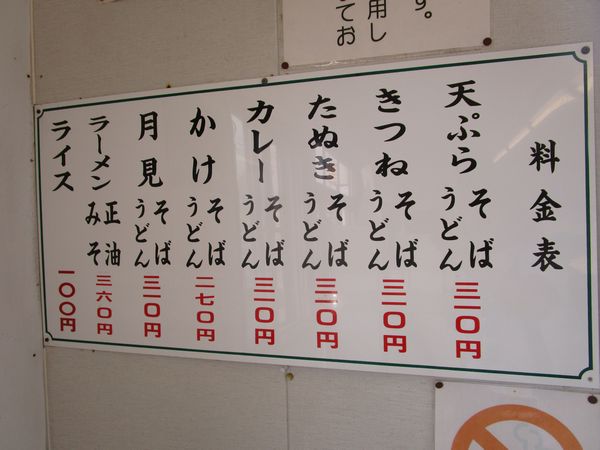 す。
用し
てお
料金表
天ぷら そば うどん 三一〇円
きつね そば うどん 三一〇円
たぬき そば うどん 三一〇円
カレー そば うどん 三一〇円
かけ そば うどん 二七〇円
月見 そば うどん 三一〇円
ラーメン 正油 みそ 三六〇円
ライス 一〇〇円